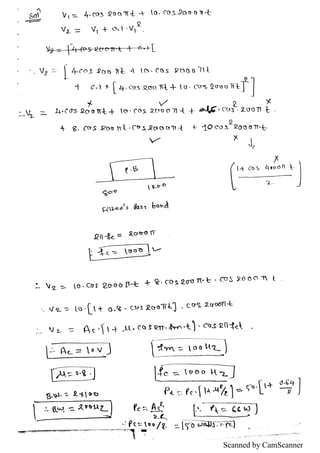 Soln V₁ = 4·cos 200πt + 10·cos 2000πt
V₂ = V₁ + 0.1·V₁²
∴ V₂ = [4·cos 200πt + 10·cos 2000πt
+ 0.1 × [4·cos 200πt + 10·cos 2000πt]²]
∴ V₂ = 4·cos 200πt + 10·cos 2000πt + cos² 200πt
+ 8·cos 200πt·cos 2000πt + 10cos² 2000πt
(1 + cos 4000πt / 2)
P.B
800 1200
Filter's Pass band
2πfc = 2000π
fc = 1000
∴ V₂ = 10·cos 2000πt + 8·cos 200πt·cos 2000πt
∴ V₂ = 10·[1 + 0.8·cos 200πt]·cos 2000πt
∴ V₂ = Ac·[1 + μ·cos 2π·fm·t]·cos 2πfct
∴ Ac = 10V fm = 100Hz
μ = 0.8 fc = 1000Hz
B.W. = 2×100 Pt = Pc·[1 + μ²/2] = 50·[1 + 0.64/2]
∴ B.W = 200Hz Pc = Ac²/2R ∴ Pt = 66W
∴ Pc = 100/2 = 50 watts
Scanned by CamScanner